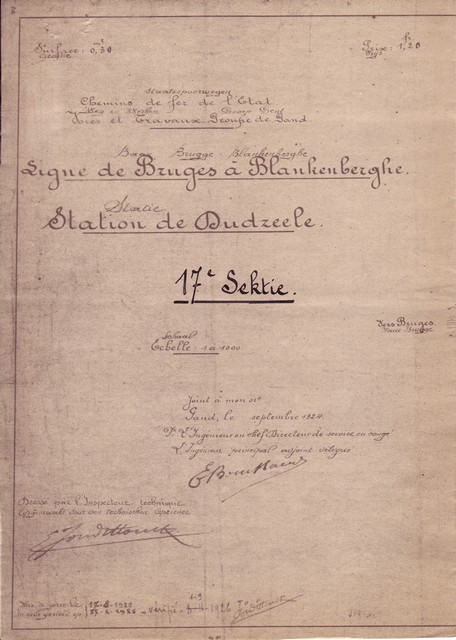 Surface: 0,50
Prix: 1,20
Prijs
Staatsspoorwegen
Chemins de fer de l'Etat
Weg en Werken Groep Gent
Voies et Travaux Groupe de Gand
Baan Brugge - Blankenberghe
Ligne de Bruges à Blankenberghe.
Statie
Station de Dudzeele.
17e Sektie.
Vers Bruges.
Naar Brugge
Schaal
Echelle: 1 à 1000
Joint à mon
Gand, le septembre 1924.
L'Ingénieur en chef Directeur de service en
L'Ingénieur principal adjoint délégué
Dressé par l'Inspecteur technique
17-8-1920
1926 - vérifié 1926